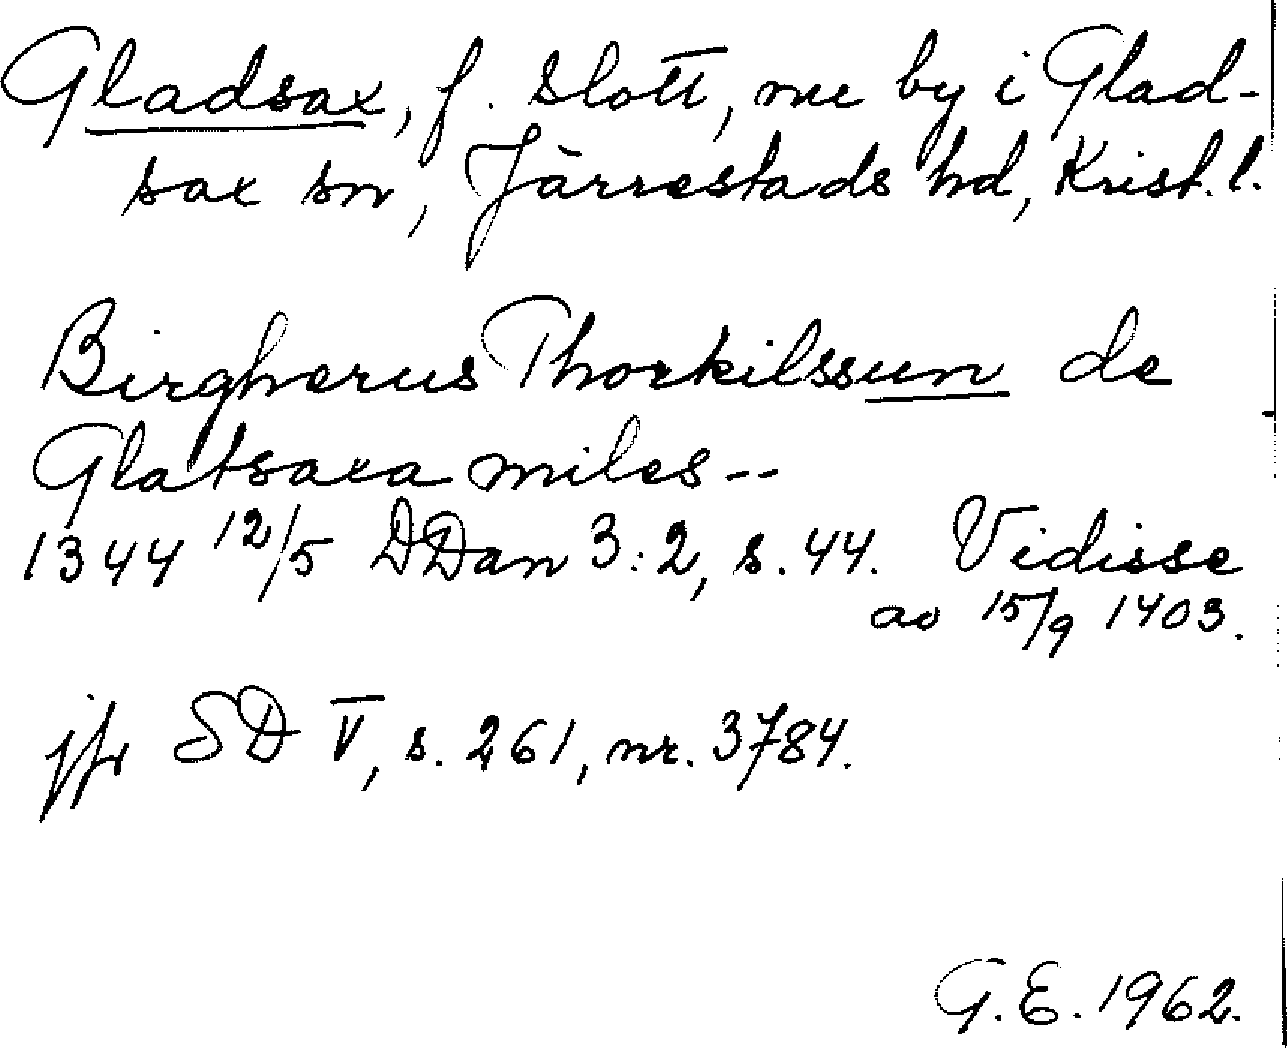 Gladsax, f. slott, nu by i Glad-
sax sn, Järrestads hd, Krist. l.
Birgherus Thorkilssun de
Glatsaxa miles--
1344 12/5 DDan 3:2, s. 44. Vidisse
av 15/9 1403.
jfr SD V, s. 261, nr. 3784.
G.E. 1962.